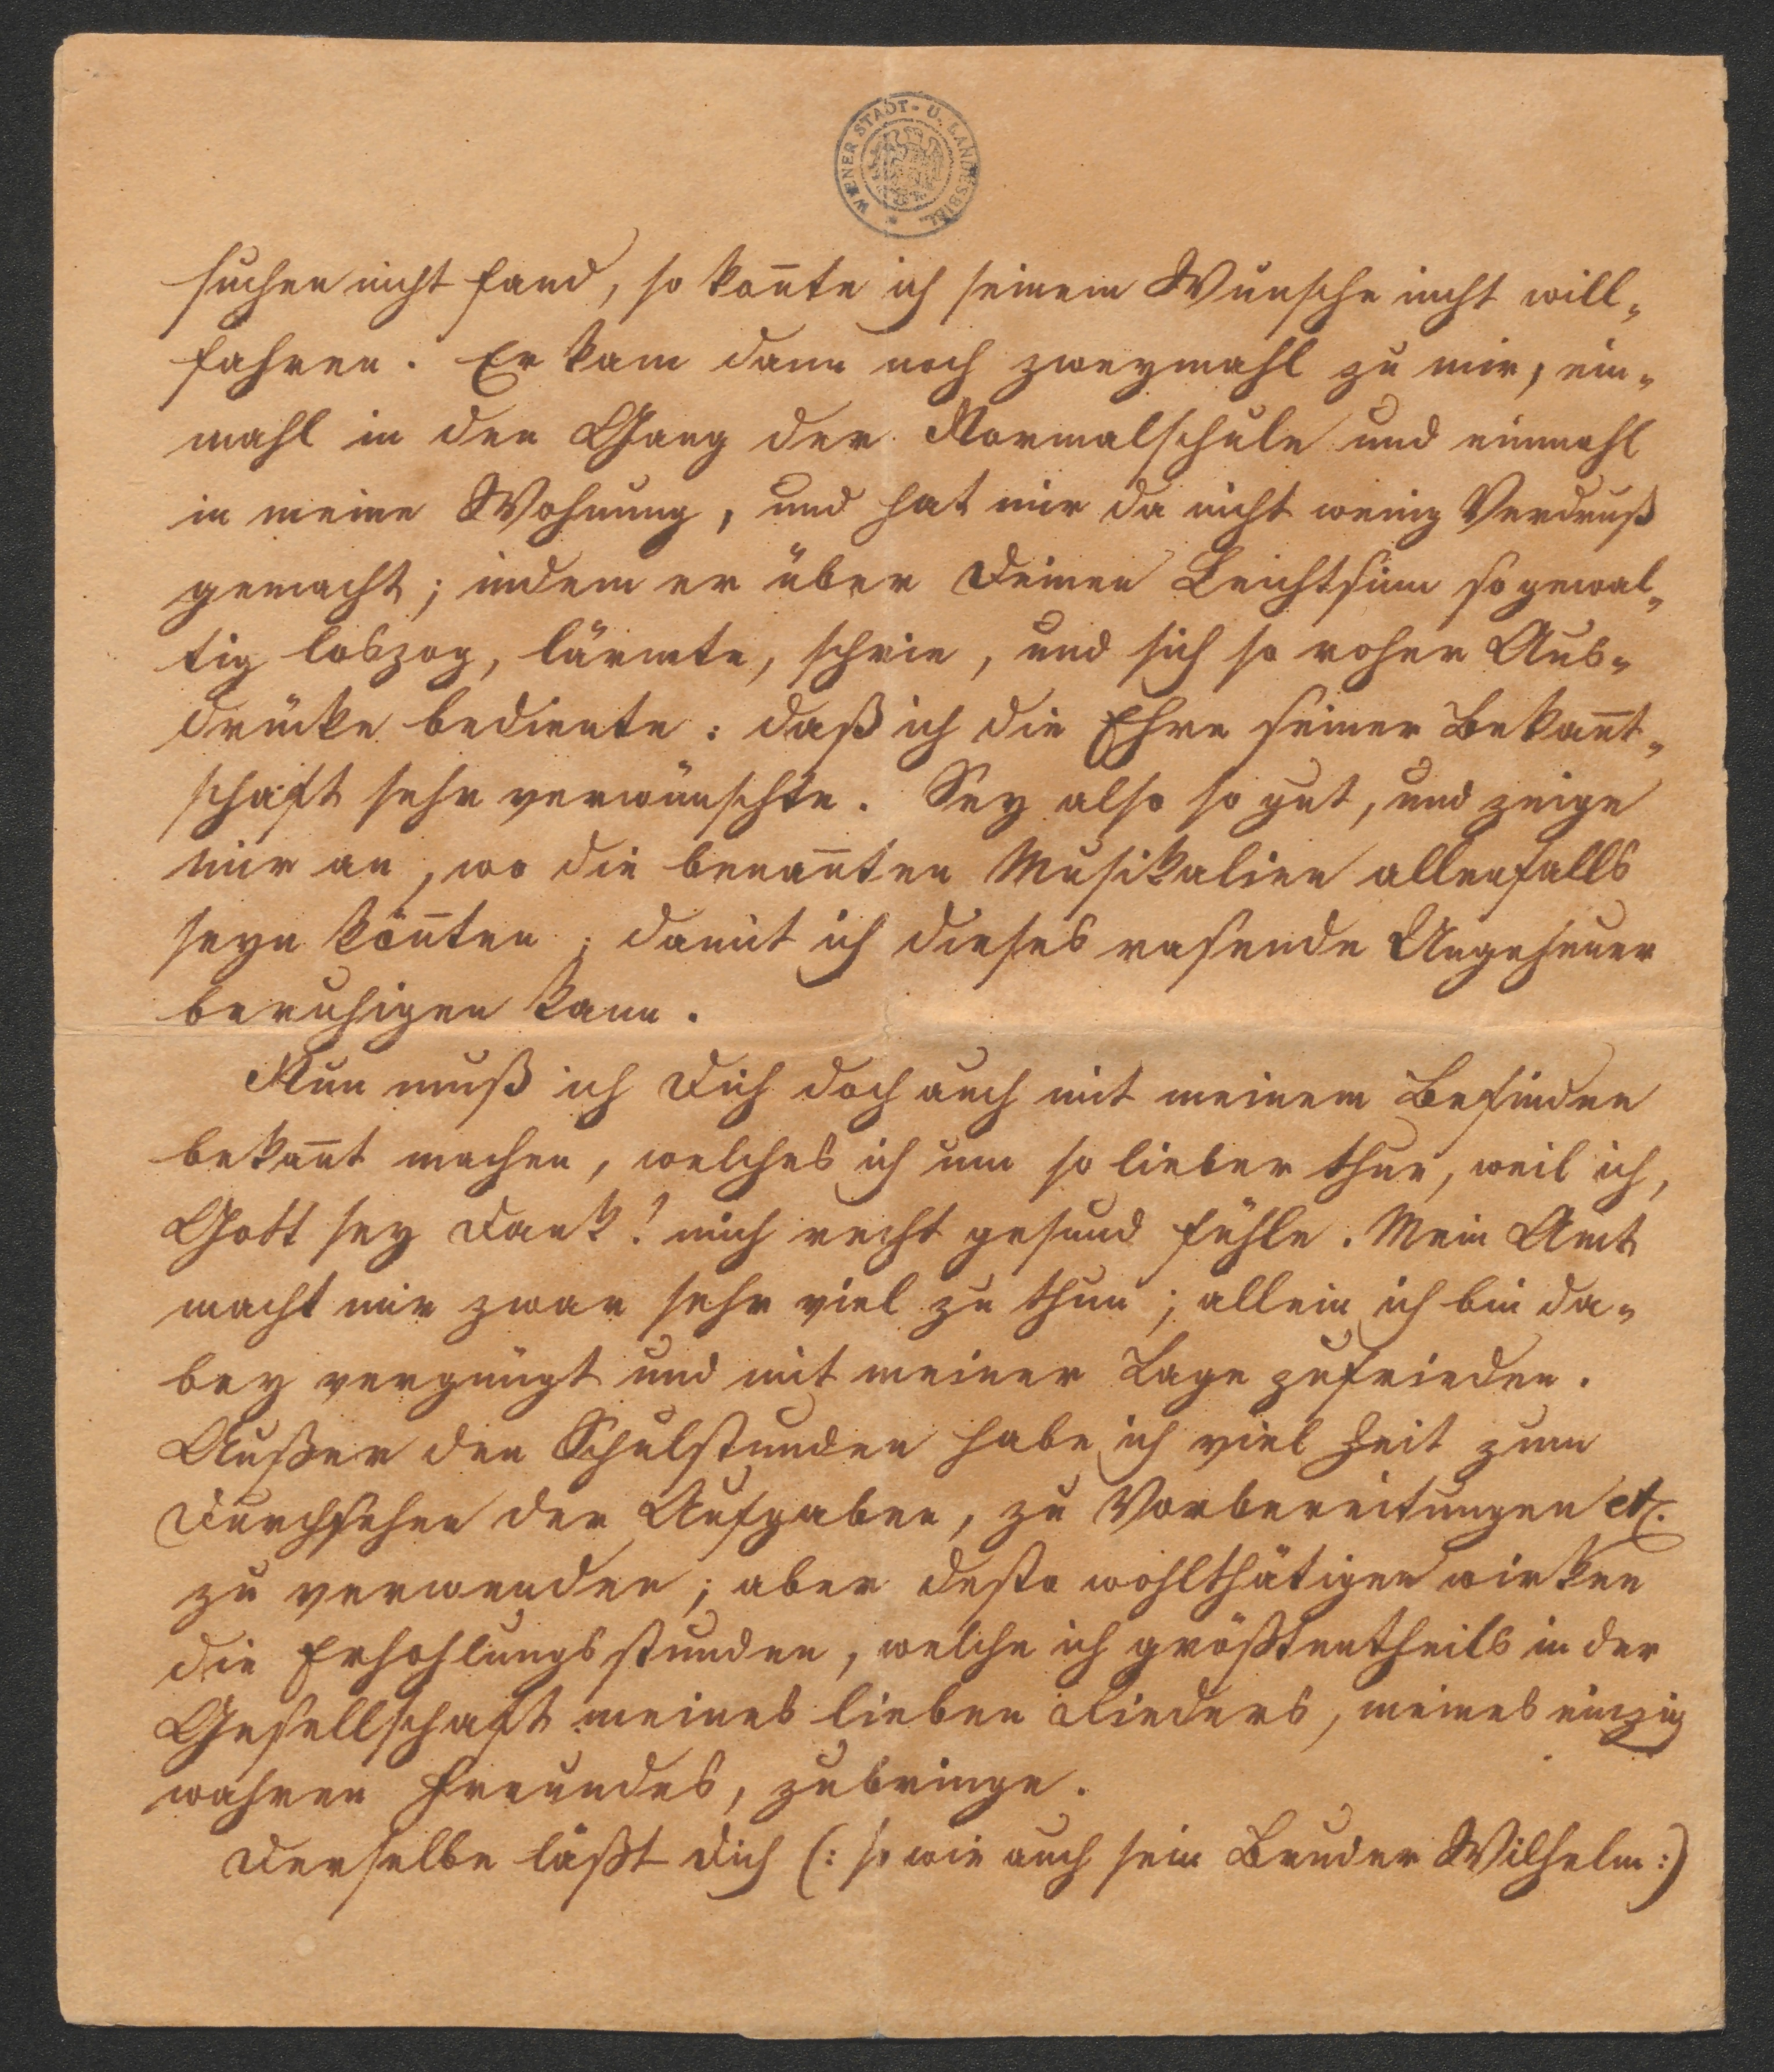 WIENER STADT- U. LANDESBIBL.
suchen nicht fand, so kon̅te ich seinem Wunsche nicht will„
fahren. Er kam dann noch zweymahl zu mir, ein„
mahl in den Gang der Normalschule und einmahl
in meine Wohnung, und hat mir da nicht wenig Verdruß
gemacht; indem er über Deinen Leichtsinn so gewal„
tig loszog, lärmte, schrie, und sich so roher Aus„
drücke bediente: daß ich die Ehre seiner Bekan̅t„
schaft sehr verwünschte. Sey also so gut, und zeige
mir an, wo die benan̅ten Musikalien allenfalls
seyn kön̅ten; damit ich dieses rasende Ungeheuer
beruhigen kann.
Nun muß ich Dich doch auch mit meinem Befinden
bekan̅t machen, welches ich um so lieber thue, weil ich,
Gott sey Dank! mich recht gesund fühle. Mein Amt
macht mir zwar sehr viel zu thun; allein ich bin da„
bey vergnügt und mit meiner Lage zufrieden.
Außer den Schulstunden habe ich viel Zeit zum
Durchsehen der Aufgaben, zu Vorbereitungen etc.
zu verwenden; aber desto wohlthätiger wirken
die Erhohlungsstunden, welche ich größtentheils in der
Gesellschaft meines lieben Rieders, meines einzig
wahren Freundes, zubringe.
Derselbe läßt Dich (: so wie auch sein Bruder Wilhelm :)